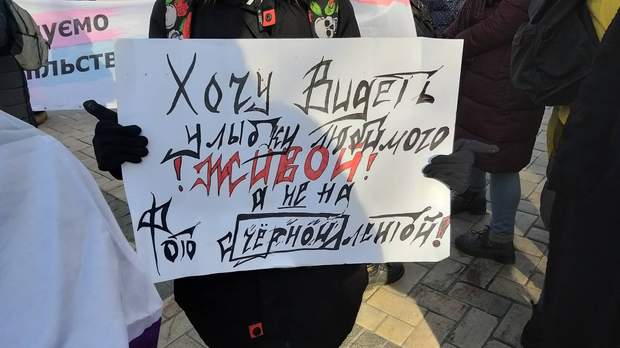 уємо
ільств
Хочу Видеть
улыбку любимого
! живой!
а не на
Фото
с чёрной лентой!